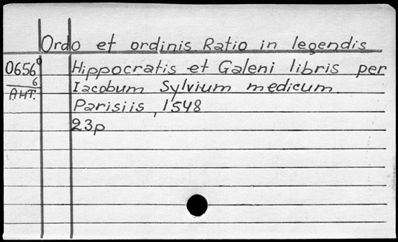 Ordo et ordinis Ratio in legendis
0656⁰ Hippocratis et Galeni libris per
6 Iacobum Sylvium medicum
АНТ. Parisiis, 1548
23p